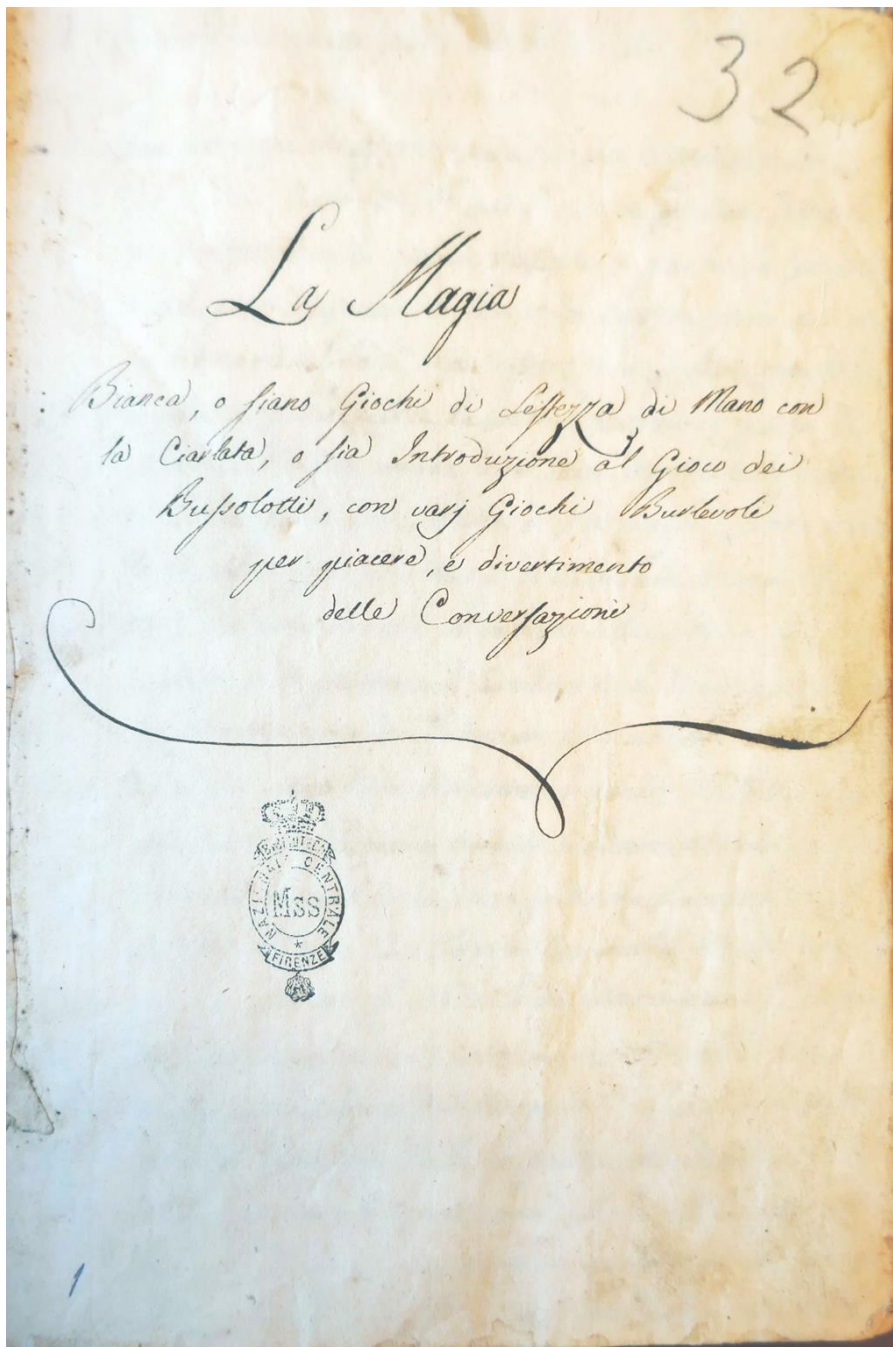 32
La Magia
Bianca, o siano Giochi di Lestezza di Mano con
la Ciarlata, o sia Introduzione al Gioco dei
Bussolotti, con varj Giochi Burlevoli
per piacere, e divertimento
delle Conversazioni
BIBLIOTECA
NAZIONALE CENTRALE
MSS
*
FIRENZE
1